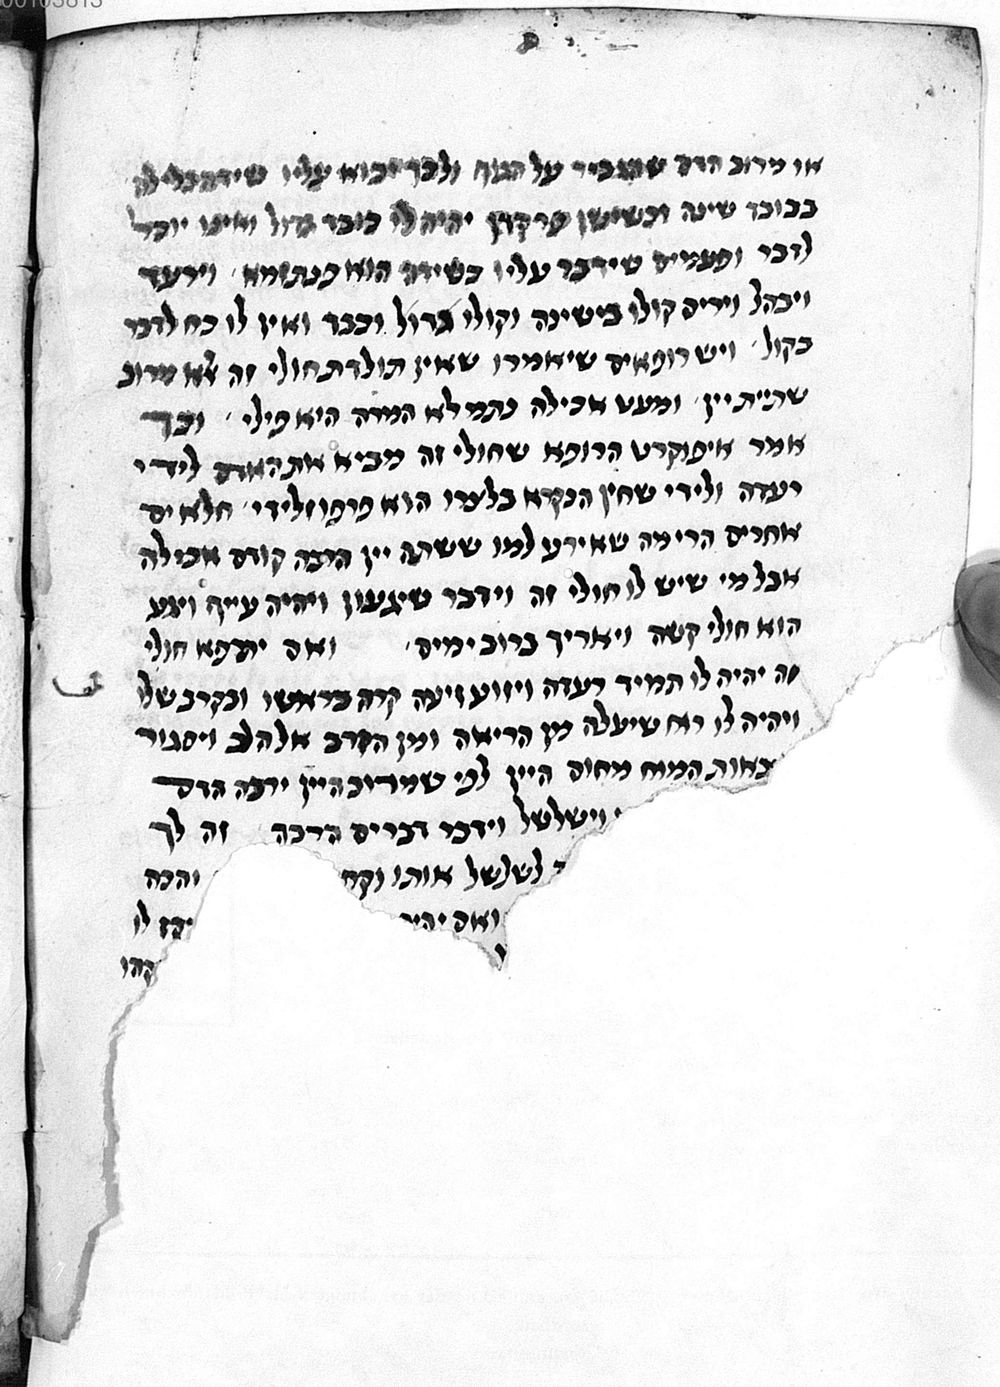 00103813
או מרוב הדם שהגביר על המוח ולכך יבוא עליו שידה בלילה
בכובד שינה וכשישן פרקדן יהיה לו כובד גדול ואינו יוכל
לדבר ופעמים שידבר עליו כשידה הוא פנתזמא וירעד
ויבהל וירים קולו בישינה וקולו גדול וכבד ואין לו כח לדבר
בקול ויש רופאים שיאמרו שאין תולדת חולי זה אלא מרוב
שתיית יין ומעט אכילה כתמלא המרה היא פילי וכך
אמר איפוקרט הרופא שחולי זה מביא את האדם לידי
רעדה ולידי שחין הנקרא בלעז הוא פרפוזלידי חלאים
אחרים הרי מה שאירע למו ששתה יין הרבה קודם אכילה
אבל מי שיש לו חולי זה וידבר שיגעון ויהיה עייף ויגע
הוא חולי קשה ויאריך ברוב ימים ואם יתרפא חולי
זה יהיה לו תמיד רעדה ויזוע זיעה קרה בראשו ובקרב שלו
ויהיה לו רוח שיעלה מן הריאה ומן הקרב אל הלב ויסגור
צאות המוח מחום היין לפי שמרוב היין ירבה הדם
וישלשל וידבר דברים הרבה זה לך
לשלשל אותו וקח והכה
ואם יהיה לו